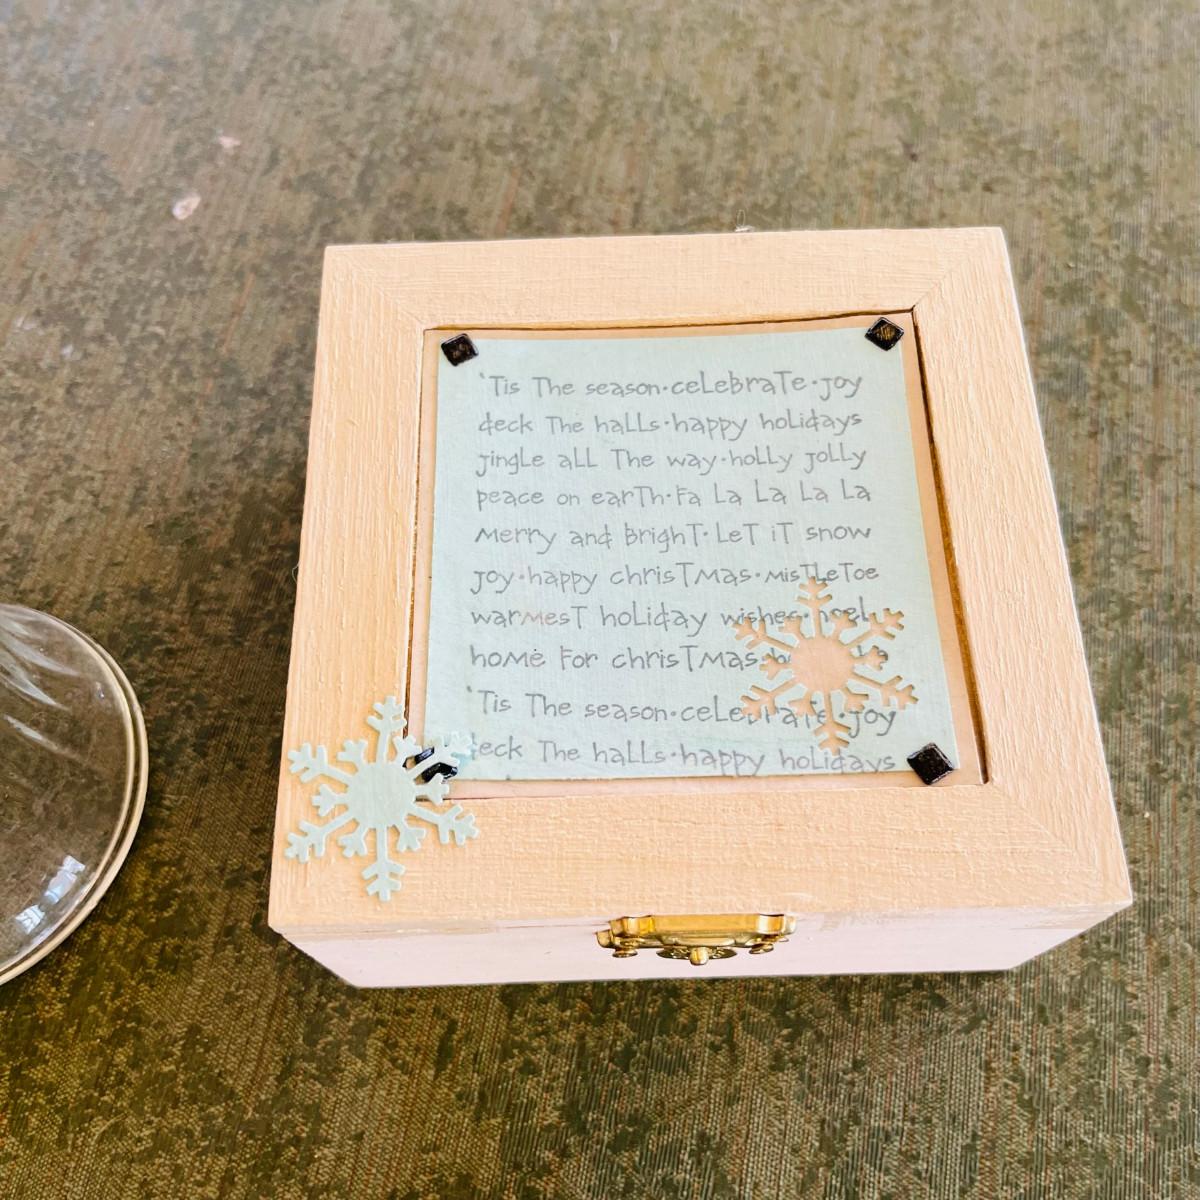 'Tis The season·celebraTe·joy
deck The halls·happy holidays
jingle all The way·holly jolly
peace on earTh·Fa La La La La
merry and brighT·LeT iT snow
joy·happy chrisTmas·misTleToe
warmesT holiday wishes·noel
home For chrisTmas
'Tis The season·celebraTe·joy
deck The halls·happy holidays